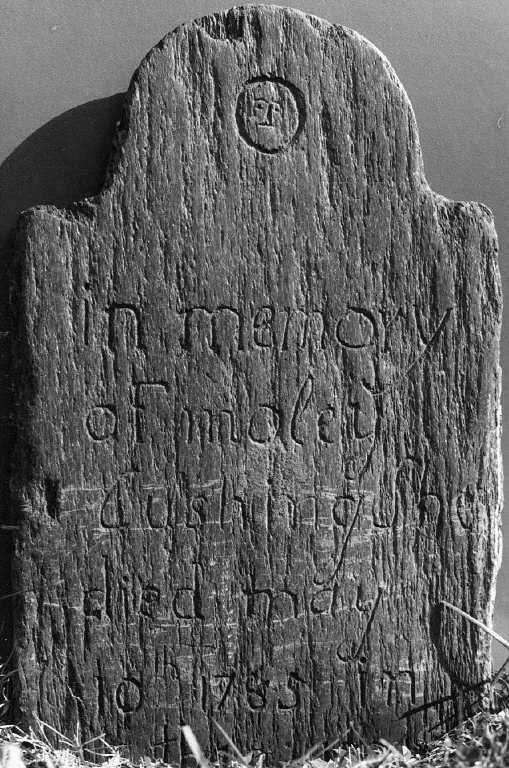 in memory
of moley
Cushing She
died may
10th 1785 in
the